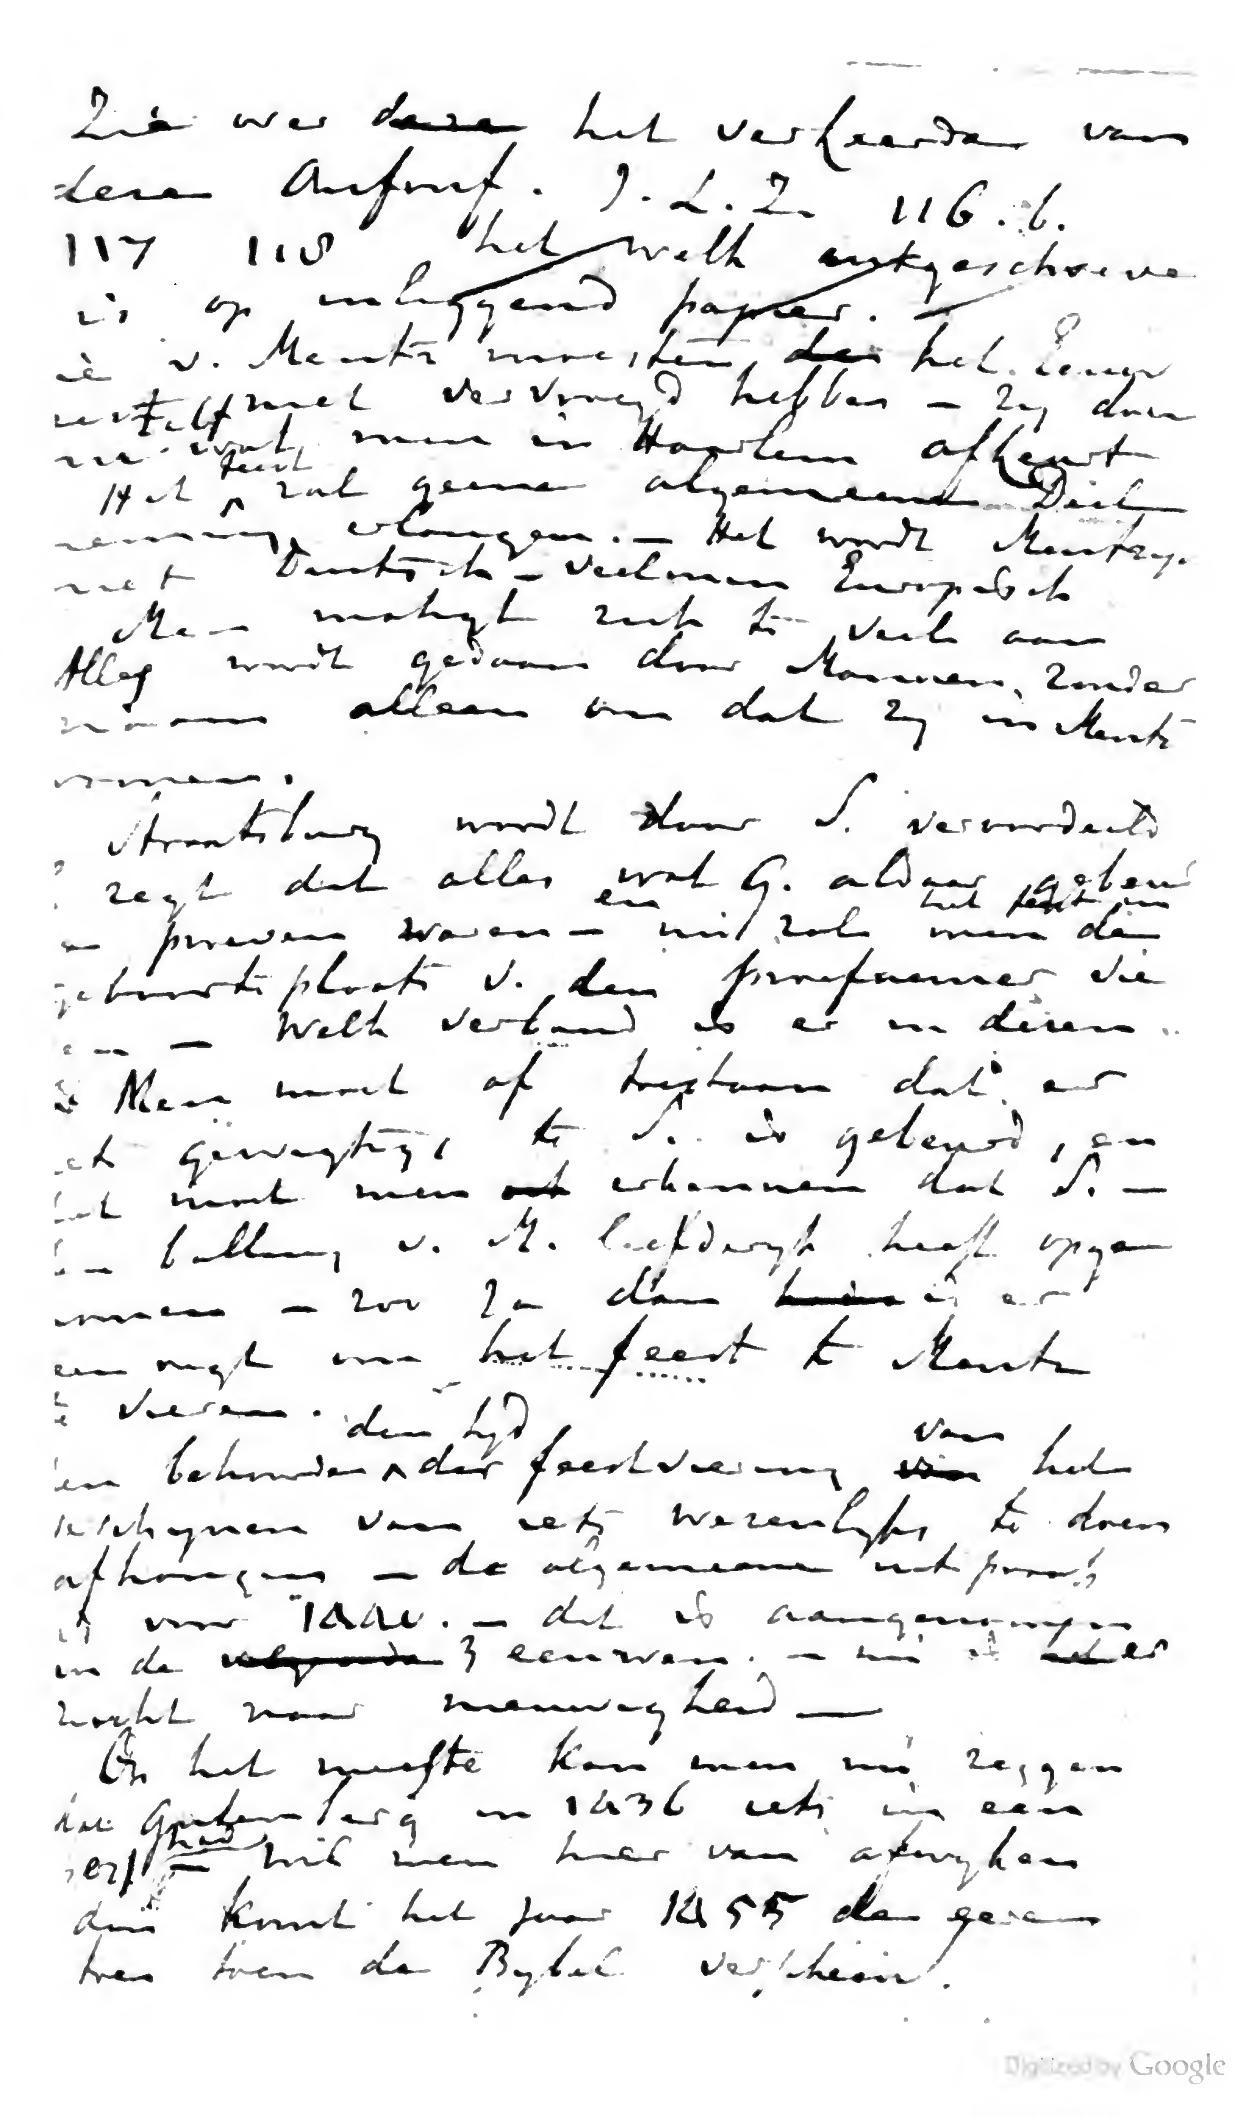 Zie over deze het verkeerde van
dezen Aufruf. J. L. Z. 116. b.
117 118 het welk uitgeschreve
is op inliggend papier.
v. Mentz moesten den het Eeuw
niet vervroegd hebben — Zij doen
wat men in Haarlem afkeurt
Het feest zal geene algemeene Deel
neming erlangen. — Het wordt Mentzig.
niet Duitsch — veelmin Europisch
Men matigt zich te veel aan
Alles wordt gedaan door Mannen, zonder
naam alleen om dat zij in Mentz
wonen.
Straatsburg wordt door S. veroordeeld
zegt dat alles wat G. aldaar gebeur
en proeven waren — nu zal men het feest in de
geboorteplaats v. den proefnemer vie
ren — Welk verband is er in dezen
Men moet of toestaan dat er
iets gewigtigs te S. is gebeurd, en
dat moet men ook erkennen dat S. —
den balling v. M. liefderijk heeft opge
nomen — zoo Ja dan is er
een regt om het feest te Mentz
te vieren.
den tijd van
en behoorden der feestviering van het
verschijnen van iets wezenlijks te doen
afhangen — de algemeene uitspraak
is voor 1440. — dit is aangenomen
in de volgende 3 eeuwen. — nu is het er
zucht naar nieuwigheid —
Op het meeste kan men nu zeggen
dat Gutenberg in 1436 iets in een
had — wil men hier van afwijken
dan komt het jaar 1455 de geren
toen de Bybel verscheen.
Digitized by Google